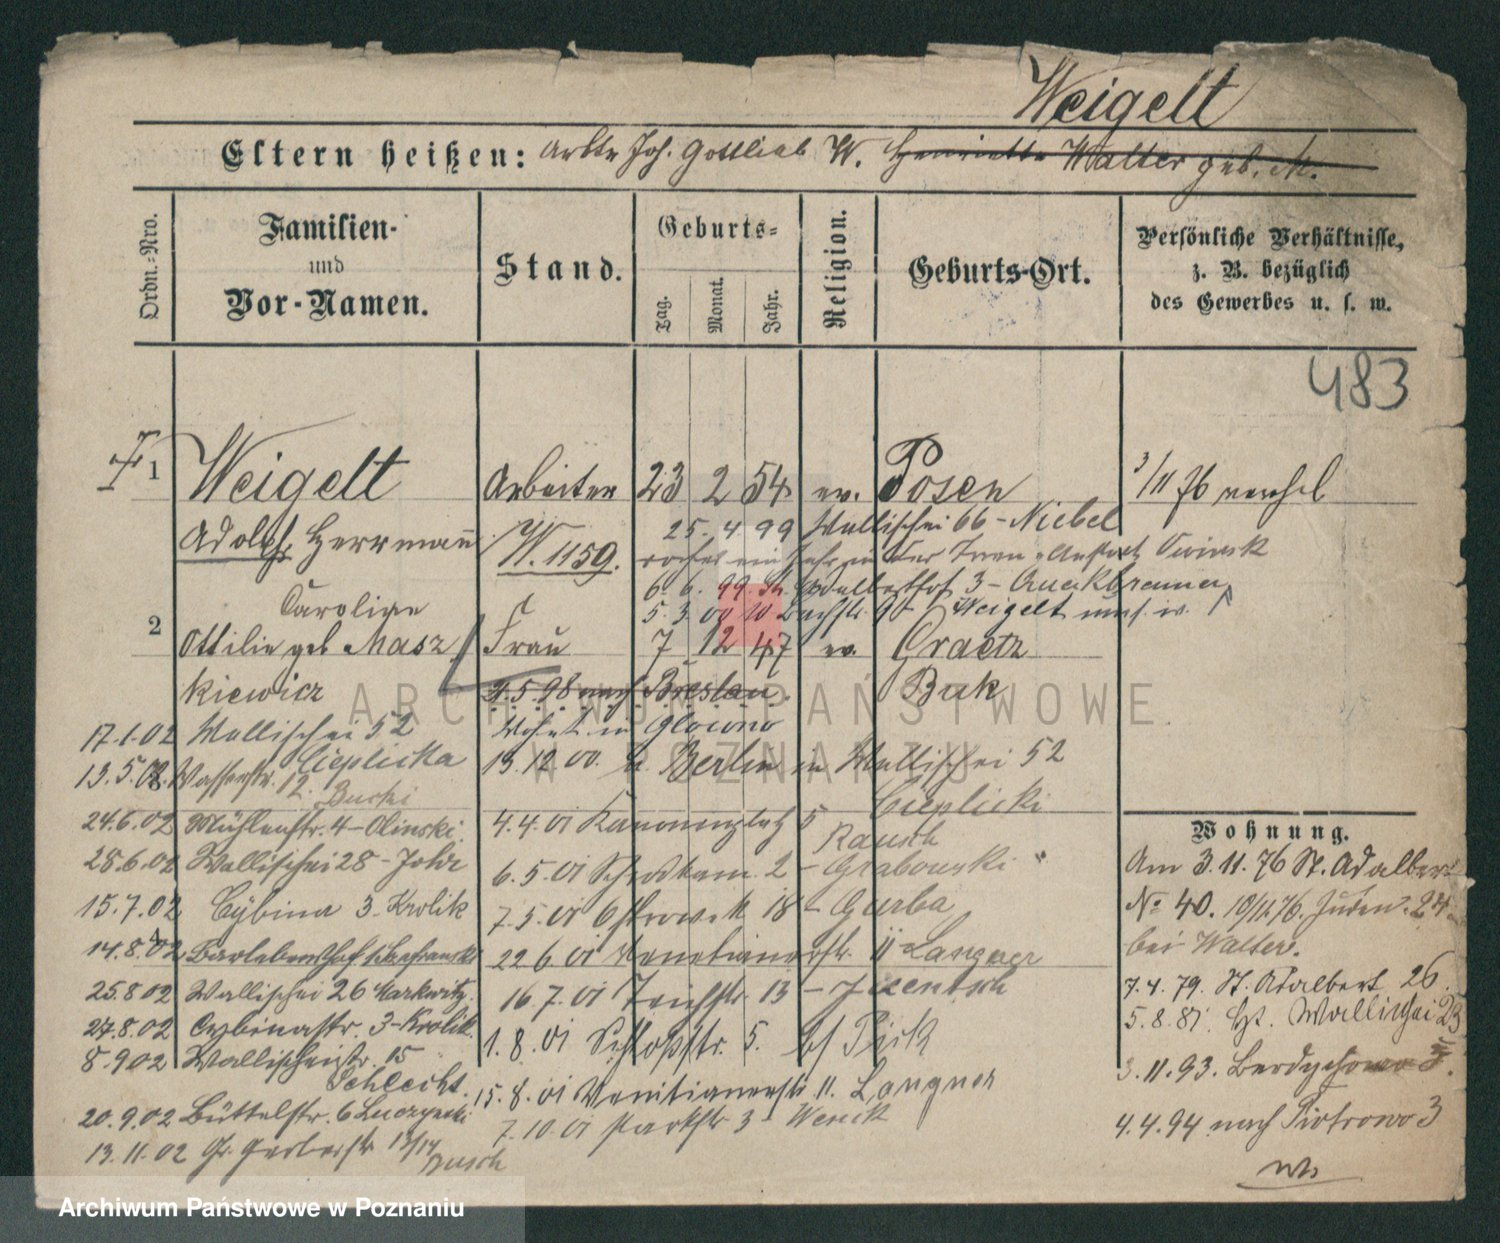 Weigelt
Eltern heißen: Joh. Gottlieb W. Henriette Walter geb. M.
Ordn.-Nro.
Familien-
und
Vor-Namen.
Stand.
Geburts-
Tag.
Monat.
Jahr.
Religion.
Geburts-Ort.
Persönliche Verhältnisse,
z. B. bezüglich
des Gewerbes u. s. w.
483
1 Weigelt Arbeiter 23 2 54 ev. Posen 3/11 76 verehel
Adolf Herrmann W. 1159. 25. 4. 99 Wallischei 66 - Niebel
6. 6. 99 Adalberthof 3 -
Caroline 5. 3. 00 90 Weigelt
2 Ottilie geb Masz Frau 7 12 47 ev. Graetz
kiewicz 21.5.98 nach Breslau. Buk
17.1.02 Wallischei 52 Wohnt in Glowno
Cieplicka
13.5.02 Wasserstr. 12. 13.12.00. v. Berlin in Wallischei 52
Cieplicki
24.6.02 Mühlenstr. 4 - Olinski. 4.4.01 Kanonenplatz 5
Rausch
28.6.02 Wallischei 28 - 6.5.01 2 - Grabowski
15.7.02 Cybina 3 - Krolik 7.5.01 Ostrowek 18 - Garba
14.8.02 22.6.01 Venetianerstr. 11 - Langner
25.8.02 Wallischei 26 Markwitz. 16.7.01 Teichstr. 13 -
27.8.02 Cybinastr. 3 - Krolik. 1.8.01 Schloßstr. 5.
8.9.02 Wallischeistr. 15
Schlecht. 15.8.01 Venitianerstr 11. Langner
20.9.02 Büttelstr. 6 7.10.01 Parkstr 3 -
13.11.02 Gr. Gerberstr 13/14
Busch
Wohnung.
Am 3.11.76 St. Adalbert
No 40. 10/11 76. Juden. 24.
bei Walter.
7.4.79. St. Adalbert 26.
5.8.81. Wallischei 23
3.11.93. Berdychowo
4.4.94 nach Piotrowo 3
ARCHIWUM PAŃSTWOWE
W POZNANIU
Archiwum Państwowe w Poznaniu